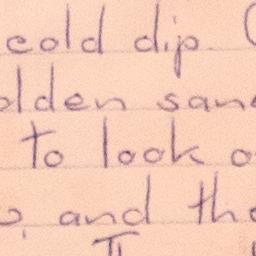 cold dip.
olden san
to look o
and the